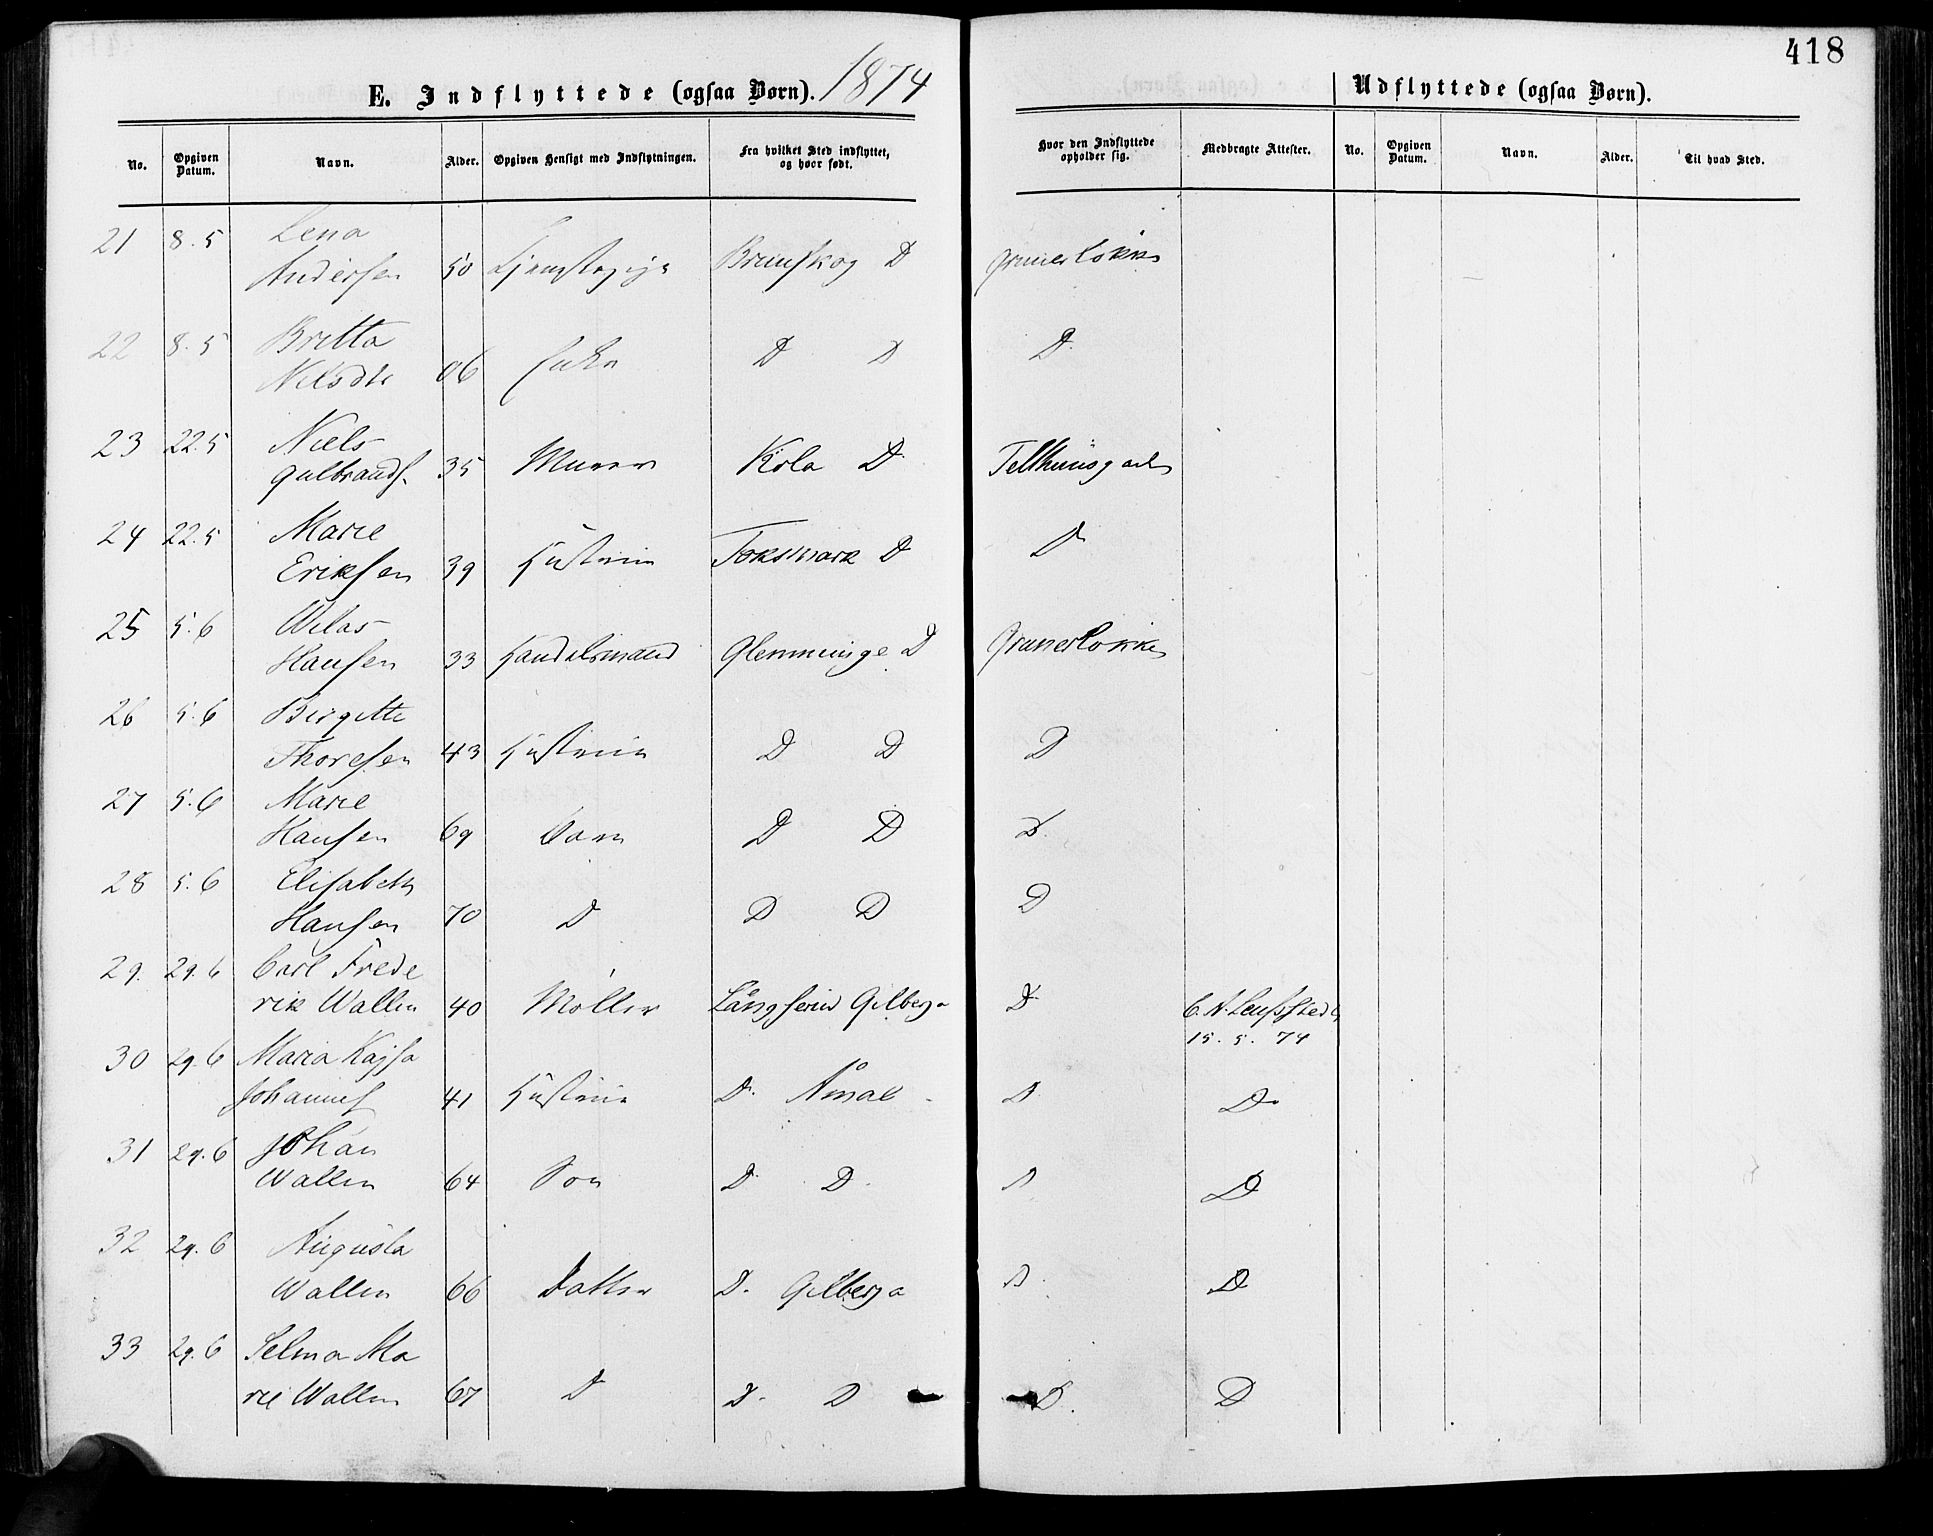 418
E. Indflyttede (ogsaa Børn). 1874
Udflyttede (ogsaa Børn).
No. Opgiven Datum. Navn. Alder. Opgiven Hensigt med Indflytningen. Fra hvilket Sted indflyttet, og hvor født. Hvor den Indflyttede opholder sig. Medbragte Attester. No. Opgiven Datum. Navn. Alder. Til hvad Sted.
21 8.5 Lena
Andersen 50 Tjenestepige Brunskog D Grunerløkke
22 8.5 Britta
Nilsdtr 06 Enke D D D.
23 22.5 Niels
Gulbrands. 35 Murer Kola D
24 22.5 Marie
Eriksen 39 Hustrue Foksmark D D
25 5.6
Hansen 33 Handelsmand Glemminge D Grunerløkke
26 5.6 Birgitte
Thoresen 43 Hustrue D D D
27 5.6 Marie
Hansen 69 Barn D D D.
28 5.6 Elisabeth
Hansen 70 D D D D
29. 29.6 Carl Frede
rik Wallin 40 Møller Långserud Gilberga D C. A. Leufstedt
15. 5. 74
30 29.6 Maria Kajsa
Johannes 41 Hustrue D. Åmål D D.
31 29.6 Johan
Wallin 64 Søn D. D. D D
32 29.6 Augusta
Wallin 66 Datter D. Gilberga D. D
33 29.6 Selma Ma
rie Wallin 67 D D. D D. D